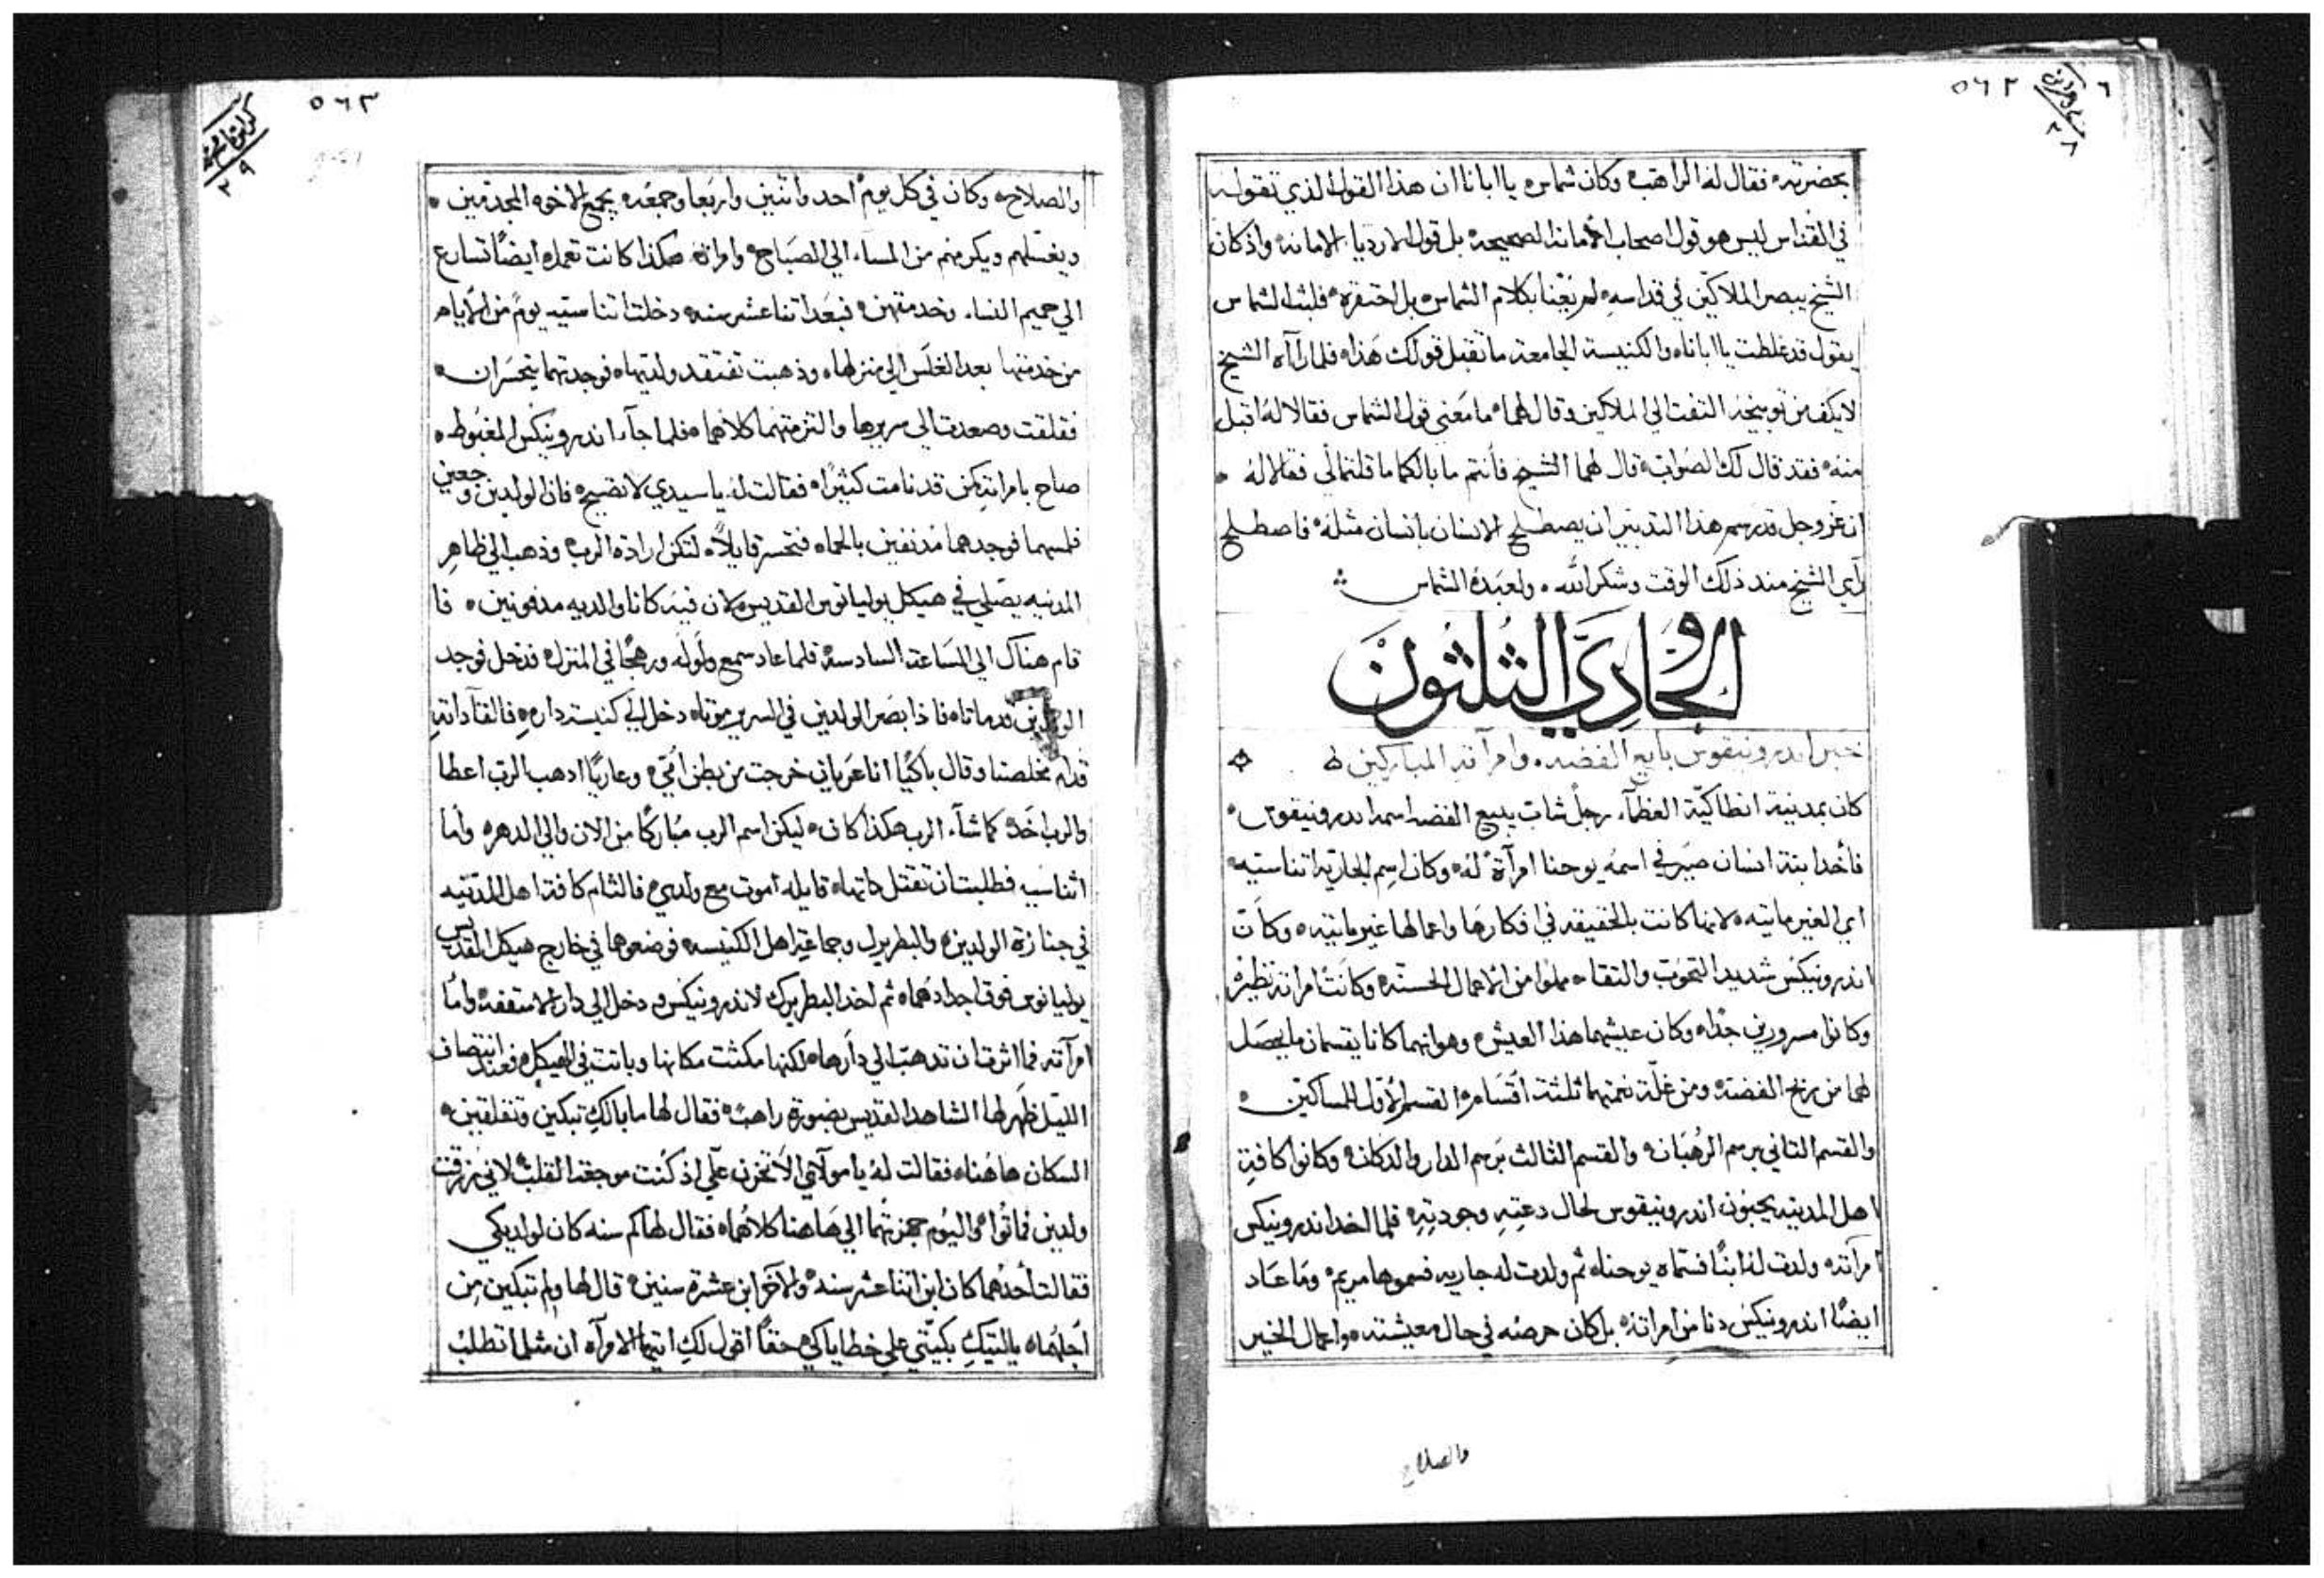 ٥٦٢
بحضرته فقال له الراهب وكان شماس يا ابانا ان هذا القول الذي تقوله
في القداس ليس هو قول اصحاب الأمانه الصحيحه بل قول الارديا الامانه واذ كان
الشيخ يبصر الملاكين في قداسه لم يعتنا بكلام الشماس بل احتقره فلبث الشماس
يقول قد غلطت يا اباناه والكنيسة الجامعه ما تقبل قولك هذا فلما رآاه الشيخ
لا يكف من توبيخه التفت الي الملاكين وقال لهما ما معني قول الشماس فقالا له اقبل
منه فقد قال لك الصواب قال لهما الشيخ فأنتم ما بالكما ما قلتما لي فقالا له
ان عز وجل قد رسم هذا التدبير ان يصطلح الانسان بانسان مثله فاصطلح
رآي الشيخ منذ ذلك الوقت وشكر الله ولعبده الشماس
الحادي والثلثون
خبر اندرونيقوس بايع الفضه وامرآته المباركين
كان بمدينة انطاكيّة العظمآء رجل شاب يبيع الفضه اسمه اندرونيقوس
فأخد ابنة انسان صيرفي اسمه يوحنا امرآة له وكان اسم الجاريه اتناسيه
اي الغير مايته لانها كانت بالحقيقه في افكارها واعمالها غير مايته وكانت
اندرونيكس شديد التحوب والتقاء مملوا من الاعمال الحسنه وكانت امراته نظيره
وكانوا مسرورين جداه وكان عيشهما هذا العيش وهو انهما كانا يقسمان ما يحصل
لهما من ربح الفضه ومن غلّة نعمتهما ثلثة أقسام القسم الأول للمساكين
والقسم التاني برسم الرهبان والقسم الثالث برسم الدار والدكان وكانوا كافة
اهل المدينه يحبون اندرونيقوس لحال دعته وجودته فلما اخد اندرونيكس
امرآته ولدت له ابنًا فسماه يوحناه ثم ولدت له جاريه فسموها مريم وما عاد
ايضًا اندرونيكس دنا من امراته بل كان حرصه في حال معيشته واعمال الخير
والصلاح
٥٦٣
والصلاح وكان في كل يوم احد واثنين واربعا وجمعه يجمع الاخوه المجدمين
ويغسلهم ويكرمهم من المساء الي الصباح وامراته هكذا كانت تعمل ايضًا تسارع
الي حميم النساء وخدمتهن فبعد اتنا عشر سنه دخلت اتناسيه يومً من الأيام
من خدمتها بعد الغلس الي منزلها وذهبت تفتقد ولديها فوجدتهما يتحسران
فقلقت وصعدت الي سريرها والتزمتهما كلاهما فلما جآء اندرونيكس المغبوط
صاح بامراته كمن قد نامت كثيرًا فقالت له يا سيدي لا تصيح فان الولدين وجعين
فلمسهما فوجدهما مدنفين بالحماه فتحسر قايلاً لتكن ارادة الرب وذهب الي ظاهر
المدينه يصلي في هيكل يوليانوس القديس لان فيه كانا والديه مدفونين فا
قام هناك الي الساعه السادسه فلما عاد سمع ولوله ورهجًا في المنزل فدخل فوجد
الولدين قد ماتا فاذا بصر الولدين في السرير موتاه دخل الي كنيسة داره فالقآ داته
قدام مخلصنا وقال باكيًا انا عريان خرجت من بطن أمي وعاريًا ادهب الرب اعطا
والرب اخد كما شآء الرب هكذا كان ليكن اسم الرب مباركًا من الان والي الدهر وأما
اثناسيه فطلبت ان تقتل داتها قايله اموت مع ولدي فالتام كافة اهل المدينه
في جنازة الولدين والبطريرك وجماعة اهل الكنيسه فوضعوهما في خارج هيكل القديس
يوليانوس فوق اجدادهما ثم اخد البطريرك لاندرونيكس ودخل الي دار الاسقفه وأما
امرآته فما اثرت ان تدهب الي دارها لكنها مكثت مكانها وباتت في الهيكل فعند انتصاف
الليل ظهر لها الشاهد القديس بصورة راهب فقال لها ما بالك تبكين وتقلقين
السكان هاهنا فقالت له يا مولاي الا تحزن علي اذ كنت موجعة القلب لاني رزقت
ولدين فماتوا واليوم جهزتهما الي هاهنا كلاهما فقال لها كم سنه كان لولديكي
فقالت أحدهما كان ابن اتنا عشر سنه والاخر ابن عشرة سنين قال لها ولم تبكين من
أجلهما يا ليتك بكيتي علي خطاياكي حقًا اقول لك ايتها الامرآه ان مثلما تطلب